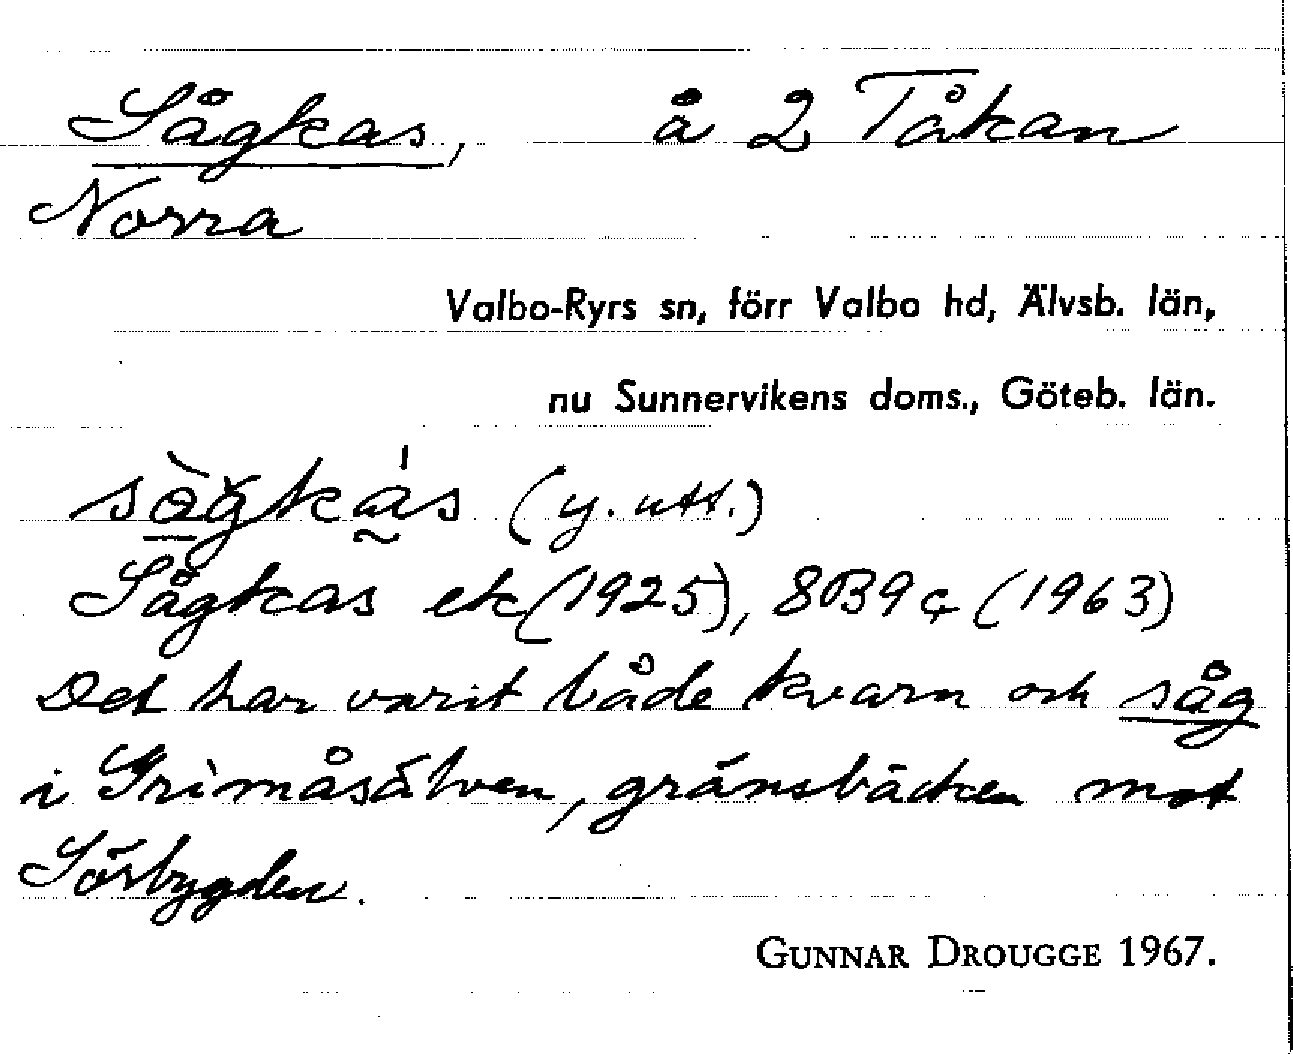 Sågkas, å 2 Tåkan
Norra
Valbo-Ryrs sn, förr Valbo hd, Älvsb. län,
nu Sunnervikens doms., Göteb. län.
(y. utt.)
Sågkas ek (1925), 8B9c (1963)
Det har varit både kvarn och såg
i Grimåsälven, gränsbäcken mot
Sörbygden.
GUNNAR DROUGGE 1967.